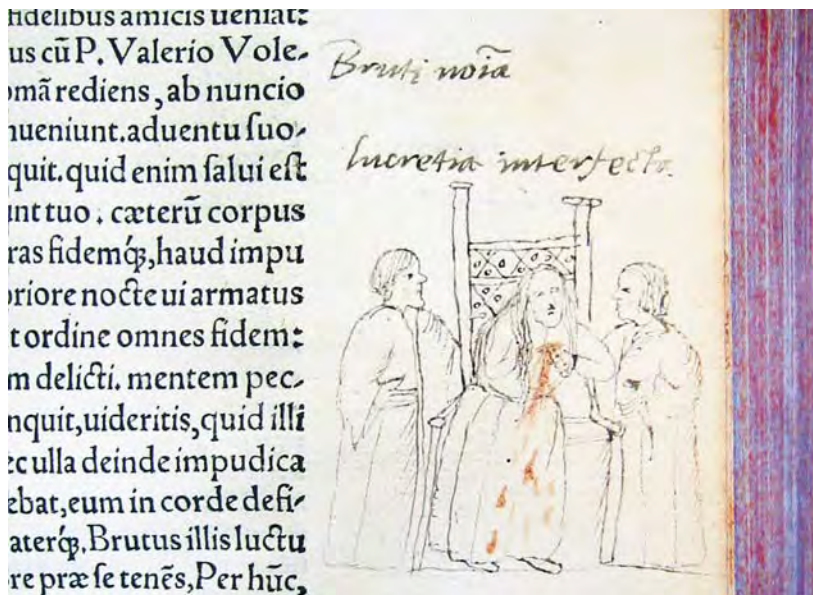 fidelibus amicis ueniat:
us cū P. Valerio Vole-
omā rediens, ab nuncio
nueniunt. aduentu suo-
quit. quid enim salui est
unt tuo. cæterū corpus
ras fidemq́ꝫ, haud impu
oriore nocte ui armatus
t ordine omnes fidem:
m delicti. mentem pec-
nquit, uideritis, quid illi
ec ulla deinde impudica
ebat, eum in corde defi-
aterq́ꝫ. Brutus illis luctu
re præ se tenēs, Per hūc,
Bruti noīa
lucretia interfecta.